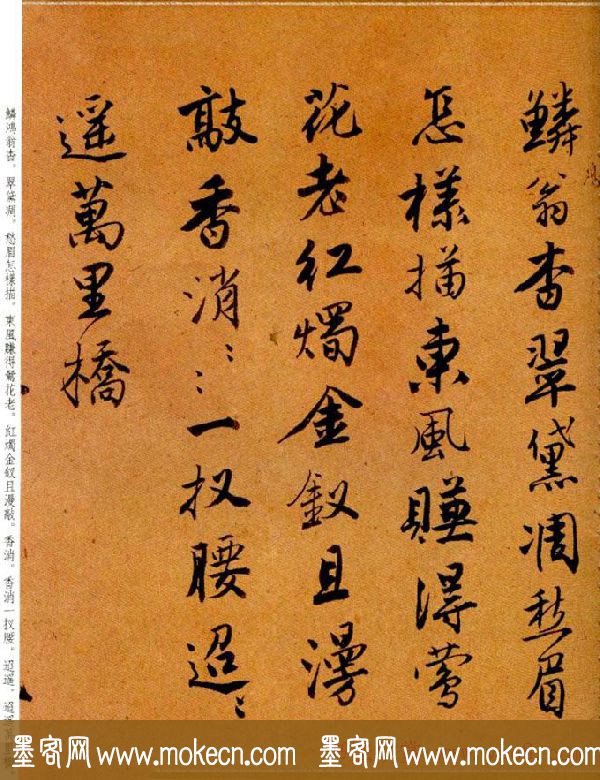 鱗翁杳翠黛凋愁眉
鴻
怎樣描東風賺得鶯
花老紅燭金釵且漫
敲香消〻〻一扠腰迢〻
遥萬里橋
鱗鴻翁杳。翠黛凋。愁眉怎樣描。東風賺得鶯花老。紅燭金釵且漫敲。香消。香消一扠腰。迢遥。迢遥萬里橋
墨客网 www.mokecn.com 墨客网 www.mokecn.com